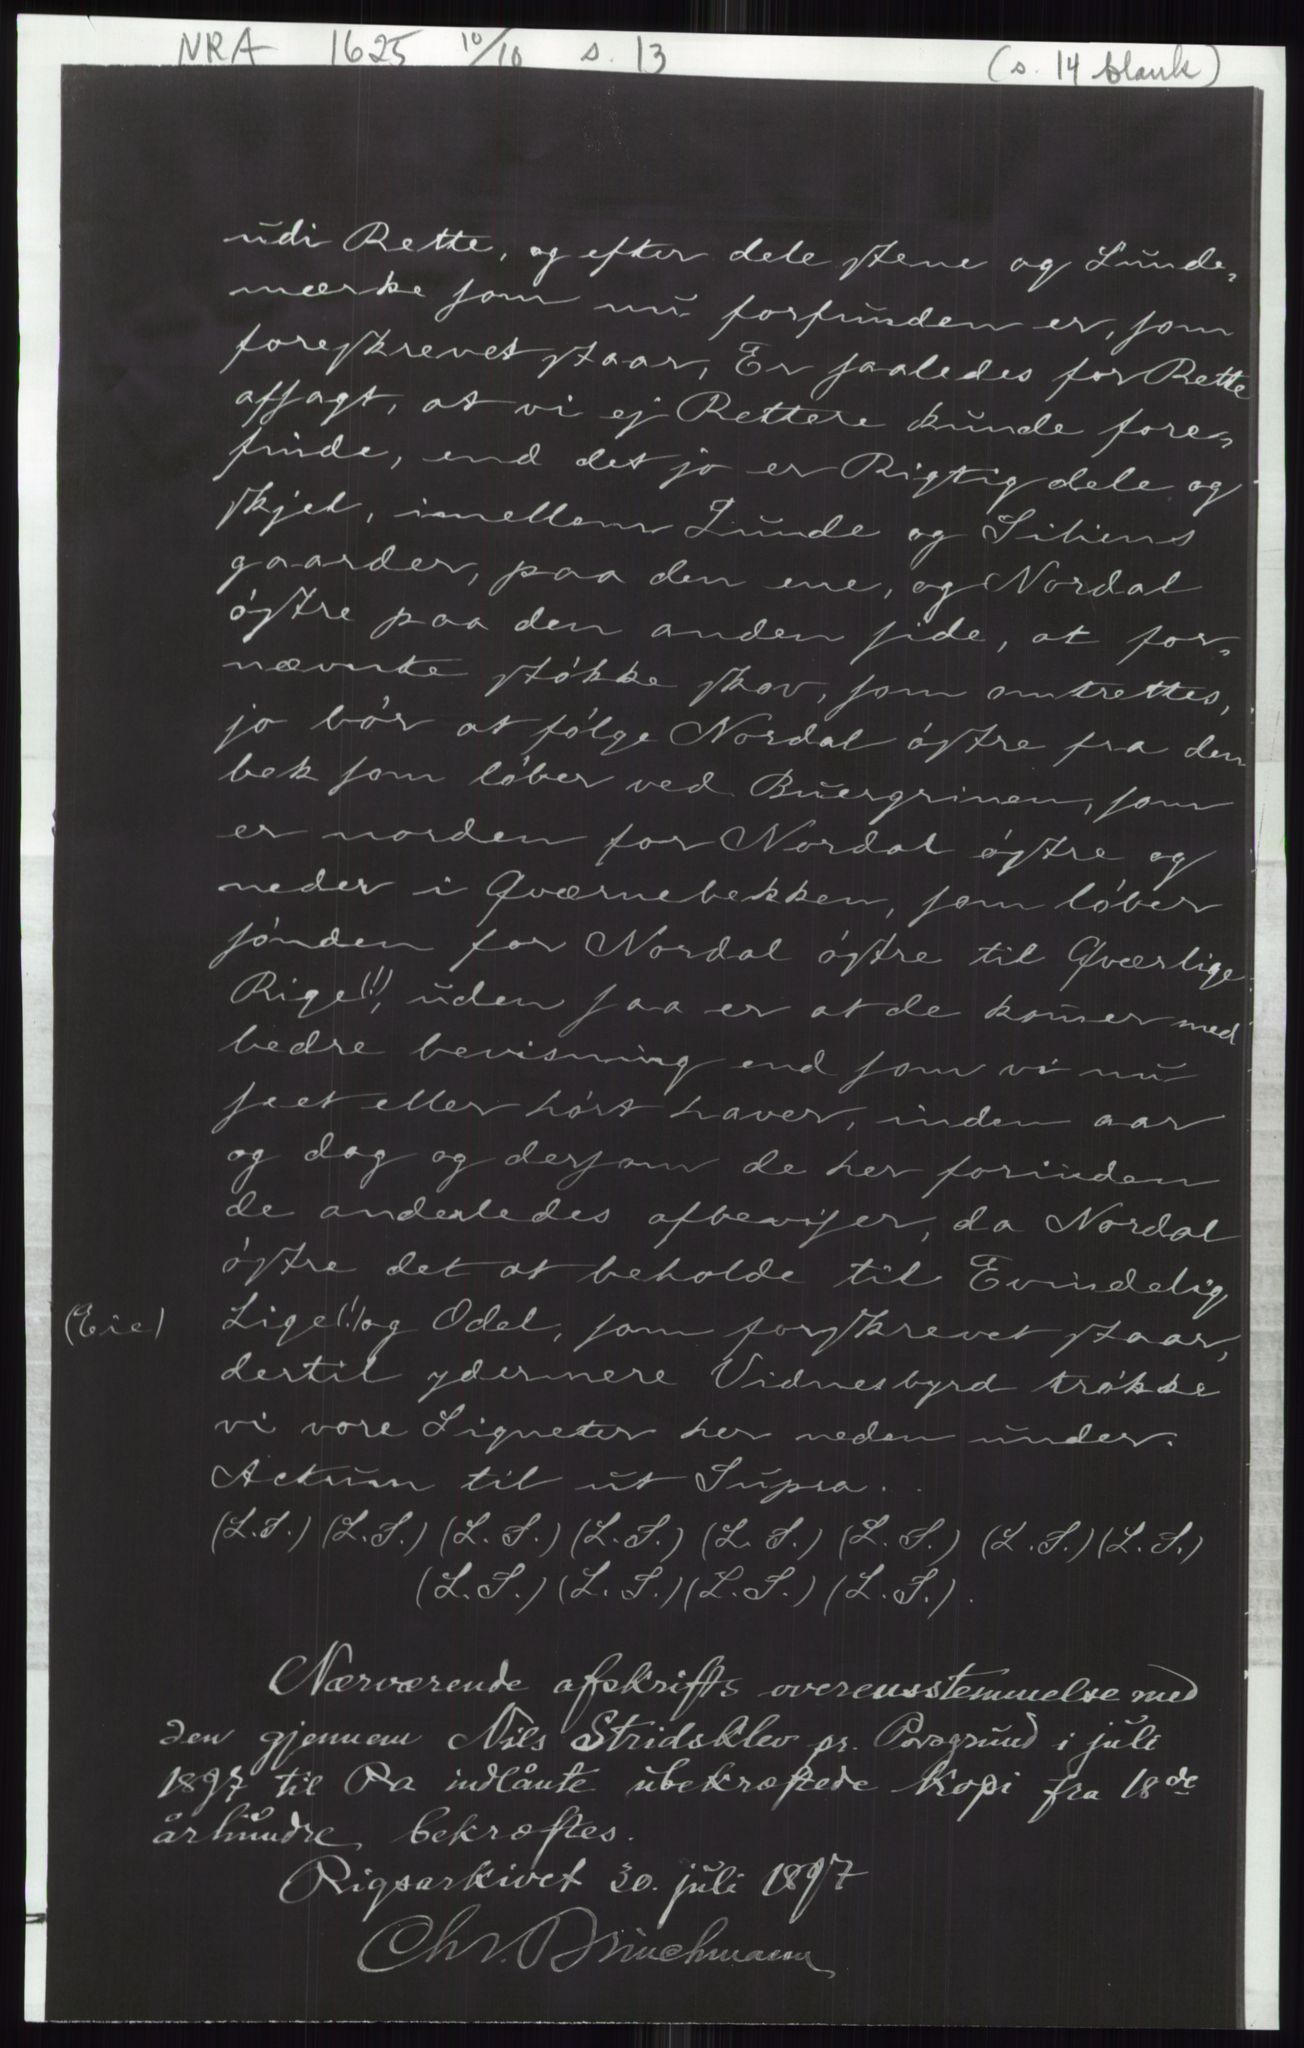 NRA 1625 10/10 s. 13 (s. 14 blank)
udi Rette, og efter dele stene og Lunde-
mærke som nu forfunden er, som
foreskrevet staar, Er saaledes for Rette
afsagt, at vi ej Rettere kunde fore-
finde, end det jo er Rigtig dele og
skjel, imellem Lunde og Siliens
gaarder, paa den ene, og Nordal
østre paa den anden side, at for-
nævnte støkke skov, som omtrettes,
jo bør at følge Nordal østre fra den
bek som løber ved Buergrinen, som
er norden for Nordal østre og
neder i Qværnebekken, som løber
sønden for Nordal østre til Qværlige
Rige(!), uden saa er at de kom̄er med
bedre bevisning end som vi nu
seet eller hørt haver, inden aar
og dag og dersom de her forinden
de anderledes afbeviser, da Nordal
østre det at beholde til Evindelig
(Eie) Lige(!) og Odel, som forskrevet staar,
dertil ydermere Vidnesbyrd trøkke
vi vore Signeter her neden under.
Actum til ut Supra.
(L.S.) (L.S.) (L.S.) (L.S.) (L.S.) (L.S.) (L.S.) (L.S.)
(L.S.) (L.S.) (L.S.) (L.S.).
Nærværende afskrifts overensstemmelse med
den gjennem Nils Stridsklev pr. Porsgrund i juli
1897 til Ra indlånte ubekræftede kopi fra 18de
århundre bekræftes.
Rigsarkivet 30. juli 1897
Chr. Brinchmann